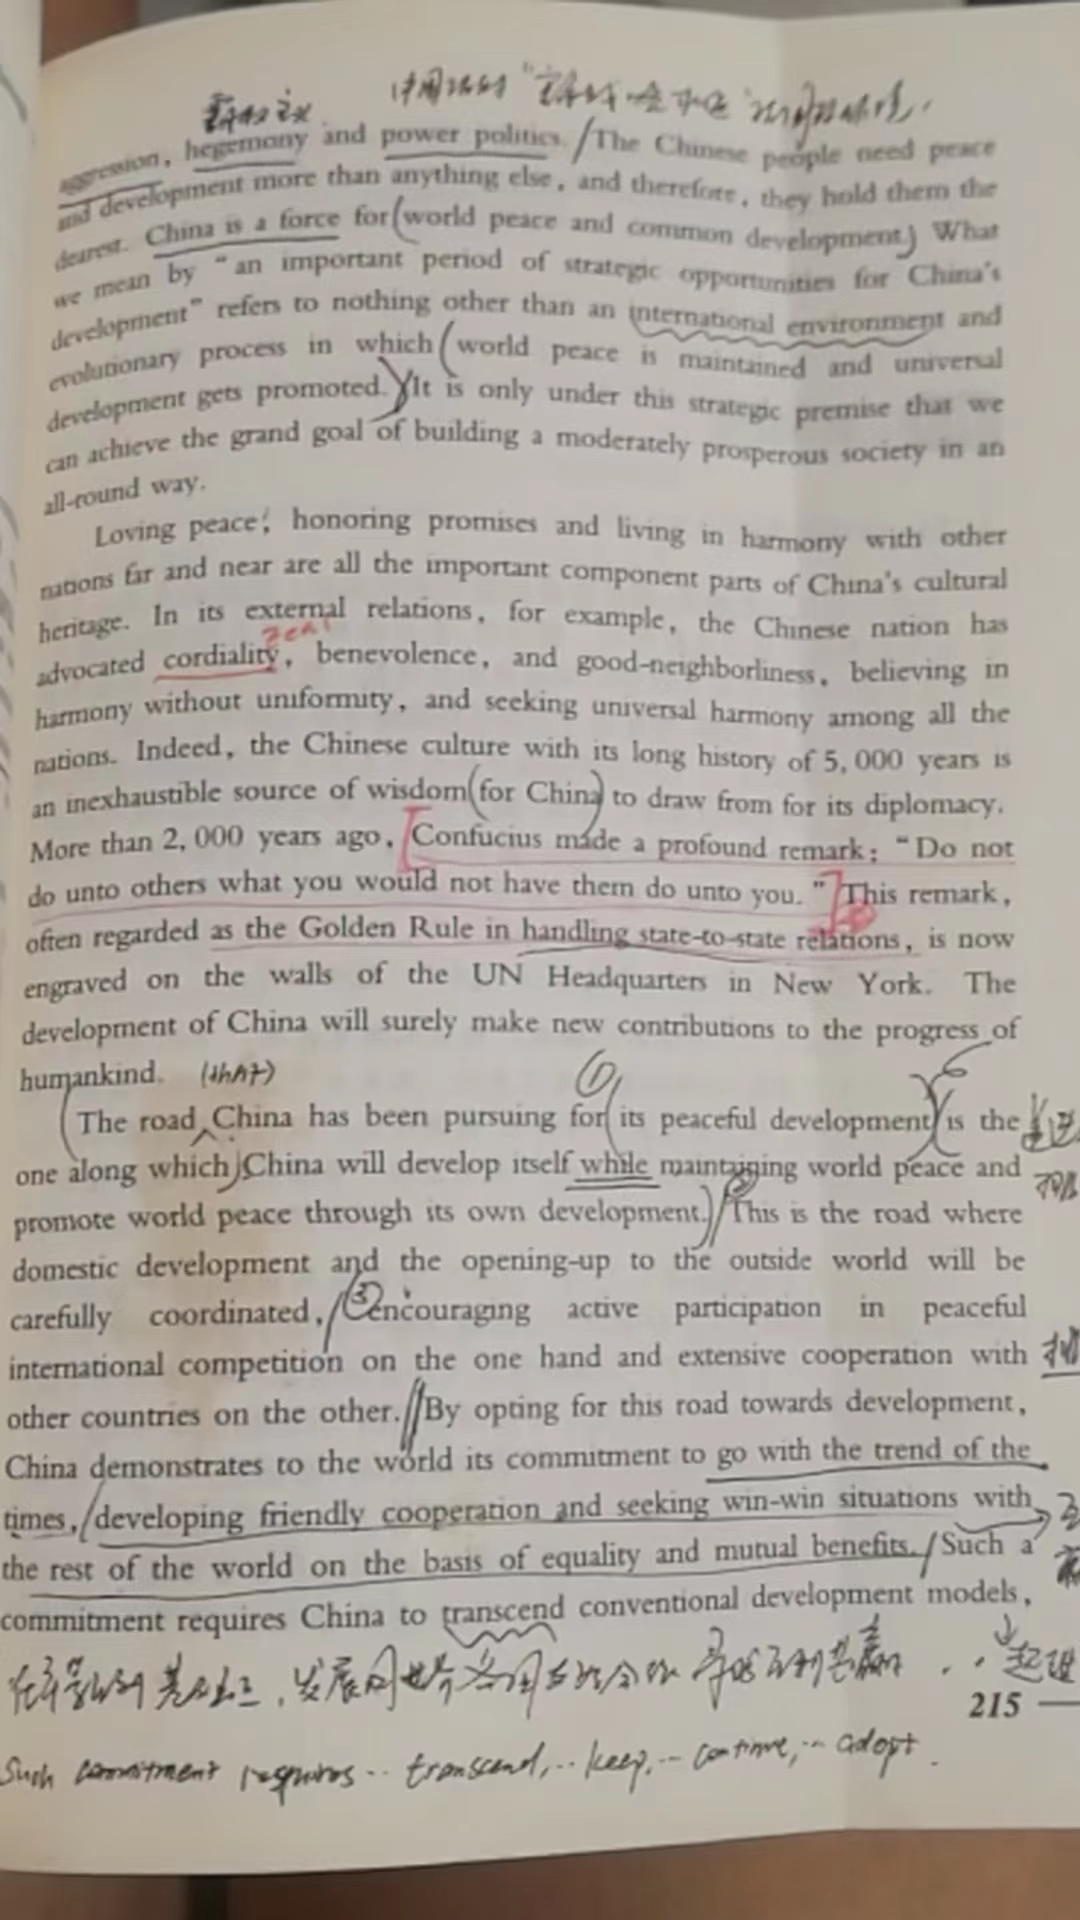 霸权主义
aggression, hegemony and power politics. The Chinese people need peace
and development more than anything else, and therefore, they hold them the
dearest. China is a force for world peace and common development. What
we mean by "an important period of strategic opportunities for China's
development" refers to nothing other than an international environment and
evolutionary process in which world peace is maintained and universal
development gets promoted. It is only under this strategic premise that we
can achieve the grand goal of building a moderately prosperous society in an
all-round way.
Loving peace, honoring promises and living in harmony with other
nations far and near are all the important component parts of China's cultural
heritage. In its external relations, for example, the Chinese nation has
zeal
advocated cordiality, benevolence, and good-neighborliness, believing in
harmony without uniformity, and seeking universal harmony among all the
nations. Indeed, the Chinese culture with its long history of 5,000 years is
an inexhaustible source of wisdom (for China) to draw from for its diplomacy.
More than 2,000 years ago, [Confucius made a profound remark: "Do not
do unto others what you would not have them do unto you."] This remark,
often regarded as the Golden Rule in handling state-to-state relations, is now
engraved on the walls of the UN Headquarters in New York. The
development of China will surely make new contributions to the progress of
humankind. (that)
The road China has been pursuing for its peaceful development is the
one along which China will develop itself while maintaining world peace and
promote world peace through its own development. This is the road where
domestic development and the opening-up to the outside world will be
carefully coordinated, ③ encouraging active participation in peaceful
international competition on the one hand and extensive cooperation with
other countries on the other. By opting for this road towards development,
China demonstrates to the world its commitment to go with the trend of the
times, developing friendly cooperation and seeking win-win situations with
the rest of the world on the basis of equality and mutual benefits. Such a
commitment requires China to transcend conventional development models,
215
Such commitment requires .. transcend, .. keep, .. continue, .. adopt.